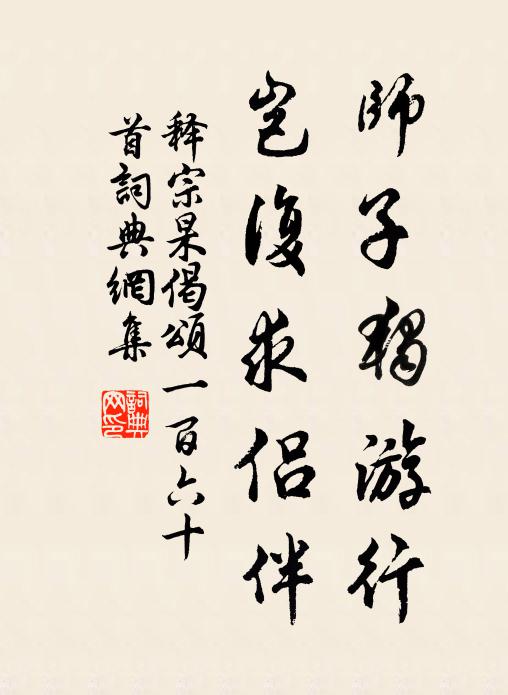 師子獨游行
豈復求侣伴
释宗杲偈頌一百六十
首詞典網集
詞典
网印